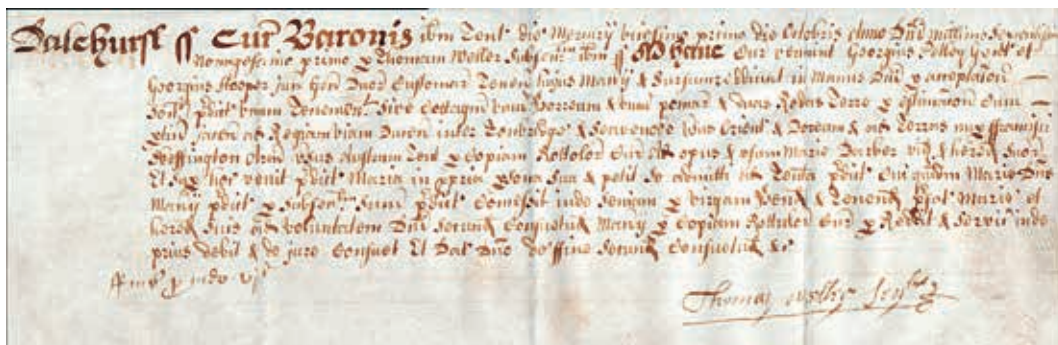 Dalehurst ss Cur Baronis ibm Tent die Mercurij vicesimo primo die Octobris Anno Dni Millimo Sexcentesimo
Nonagesimo primo p Thomam Weller Subsen ibm ss Ad hanc Cur venerunt Georgius Polley Gent et
Georgius Hooper jun Gen Duo Customar Tenen hujus Manij & Sursumreddiderunt in Manus Dni p acceptacon
pdict unum Tenementu Sive Cottagiu unu Horreum & unu pomar & duas Rodas Terre p estimacon cum
ptin jacen ad Regiam viam Ducen inter Tonbridge & Seavenoke vsus Orient & Boream & ad Terras
Seffington vsus Austrum Tent p Copiam Rotulor Cur Ad opus & usum Marie Barber vid & hered Suor
Et Sup hoc venit pdict Maria in ppria psona Sua & petit Se admitti ad Tenta pdict Cui quidem Marie Dns
Manij pdict p Subsen Suum pdict Concessit inde Seisinam p virgam Hend & Tenend pfat Marie et
hered Suis ad voluntatem Dni Secund Consuetud Manij p Copiam Rotulor Cur p Reddit & Servic inde
prius debit & de jure Consuet Et Dat Dno de ffine Secund Consuetud &c
inde vj
Thomas Weller